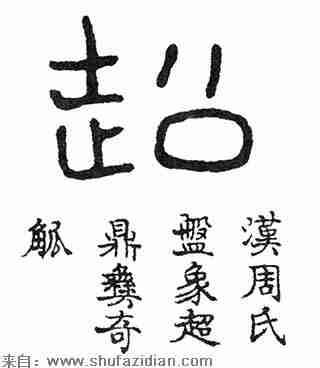 超
漢周氏
盤象超
鼎彝奇
觚
来自：www.shufazidian.com